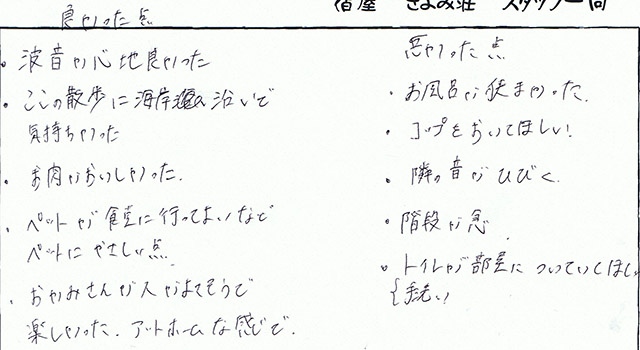 宿屋 きよみ荘 スタッフ一同
良かった点
・波音が心地良かった
・ここの散歩に海岸沿いで
気持ちよかった
・お肉がおいしかった.
・ペットが食堂に行ってよいなど
ペットにやさしい点
・おかみさんが人がよさそうで
楽しかった.アットホームな感じで.
悪かった点
・お風呂が狭まかった.
・コップをおいてほしい!
・隣の音がひびく
・階段が急
・トイレが部屋についていてほしい
手洗い